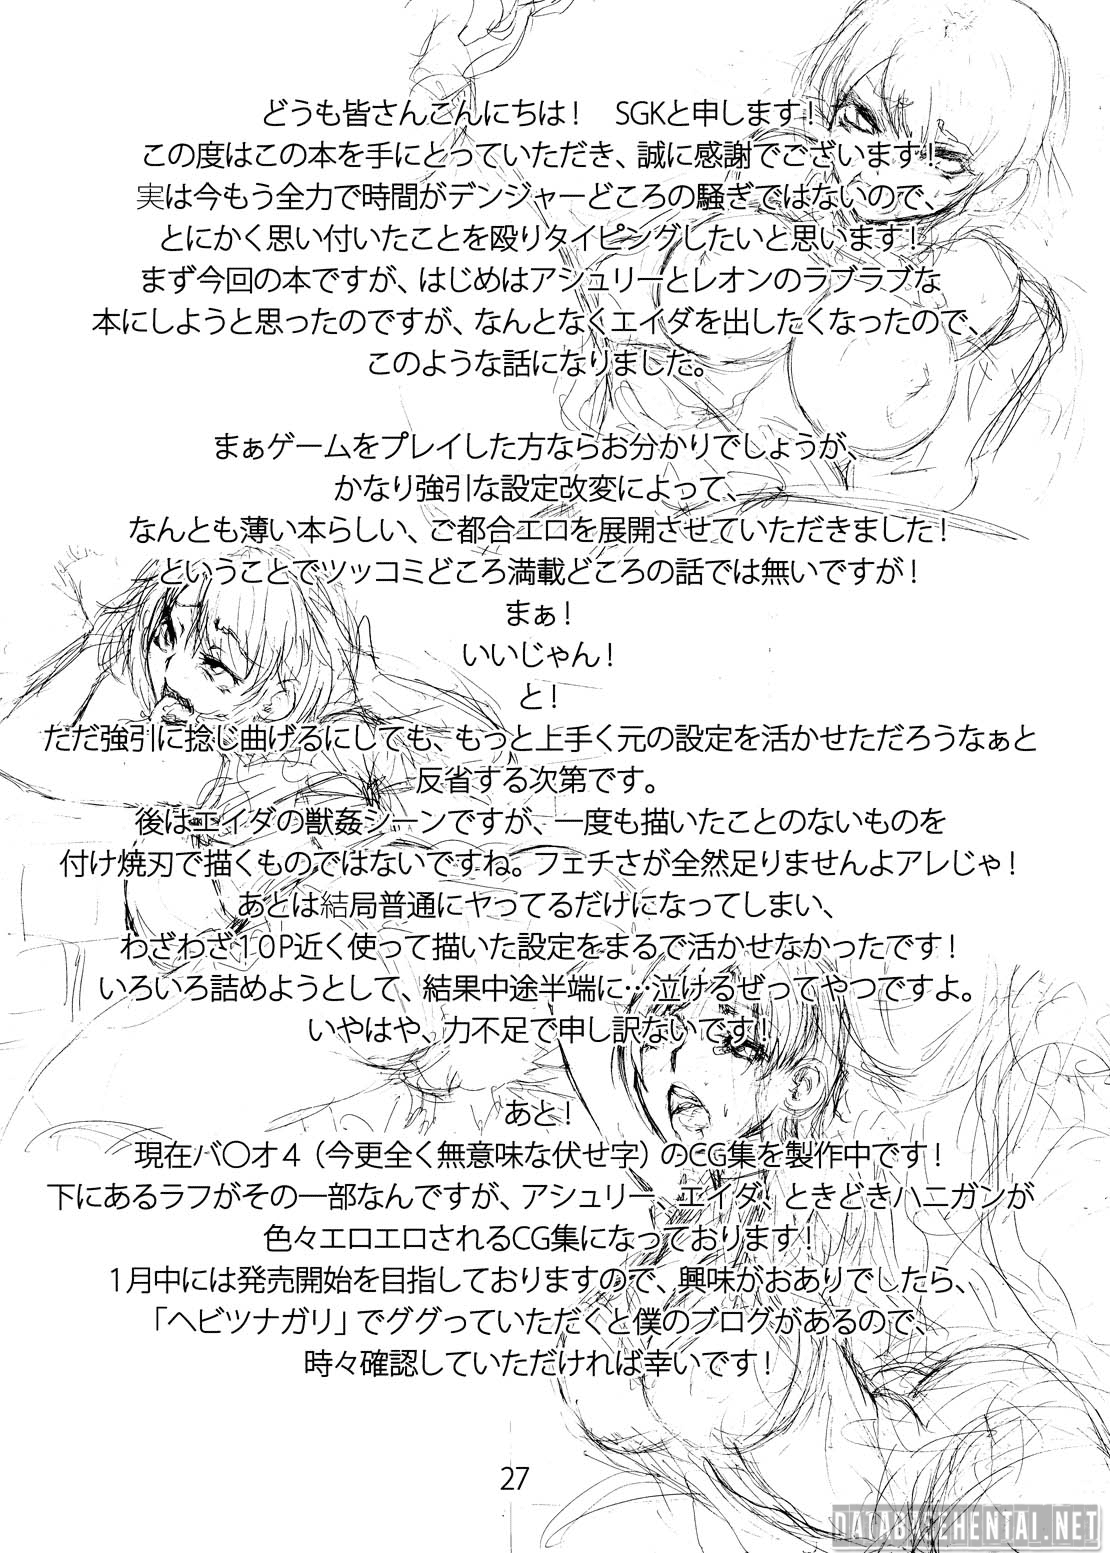 どうも皆さんこんにちは！　SGKと申します！
この度はこの本を手にとっていただき、誠に感謝でございます！
実は今もう全力で時間がデンジャーどころの騒ぎではないので、
とにかく思い付いたことを殴りタイピングしたいと思います！
まず今回の本ですが、はじめはアシュリーとレオンのラブラブな
本にしようと思ったのですが、なんとなくエイダを出したくなったので、
このような話になりました。
まぁゲームをプレイした方ならお分かりでしょうが、
かなり強引な設定改変によって、
なんとも薄い本らしい、ご都合エロを展開させていただきました！
ということでツッコミどころ満載どころの話では無いですが！
まぁ！
いいじゃん！
と！
ただ強引に捻じ曲げるにしても、もっと上手く元の設定を活かせただろうなぁと
反省する次第です。
後はエイダの獣姦シーンですが、一度も描いたことのないものを
付け焼刃で描くものではないですね。フェチさが全然足りませんよアレじゃ！
あとは結局普通にヤってるだけになってしまい、
わざわざ１０P近く使って描いた設定をまるで活かせなかったです！
いろいろ詰めようとして、結果中途半端に…泣けるぜってやつですよ。
いやはや、力不足で申し訳ないです！
あと！
現在バ〇オ４（今更全く無意味な伏せ字）のCG集を製作中です！
下にあるラフがその一部なんですが、アシュリー、エイダ、ときどきハニガンが
色々エロエロされるCG集になっております！
１月中には発売開始を目指しておりますので、興味がおありでしたら、
「ヘビツナガリ」でググっていただくと僕のブログがあるので、
時々確認していただければ幸いです！
27
DATABASEHENTAI.NET